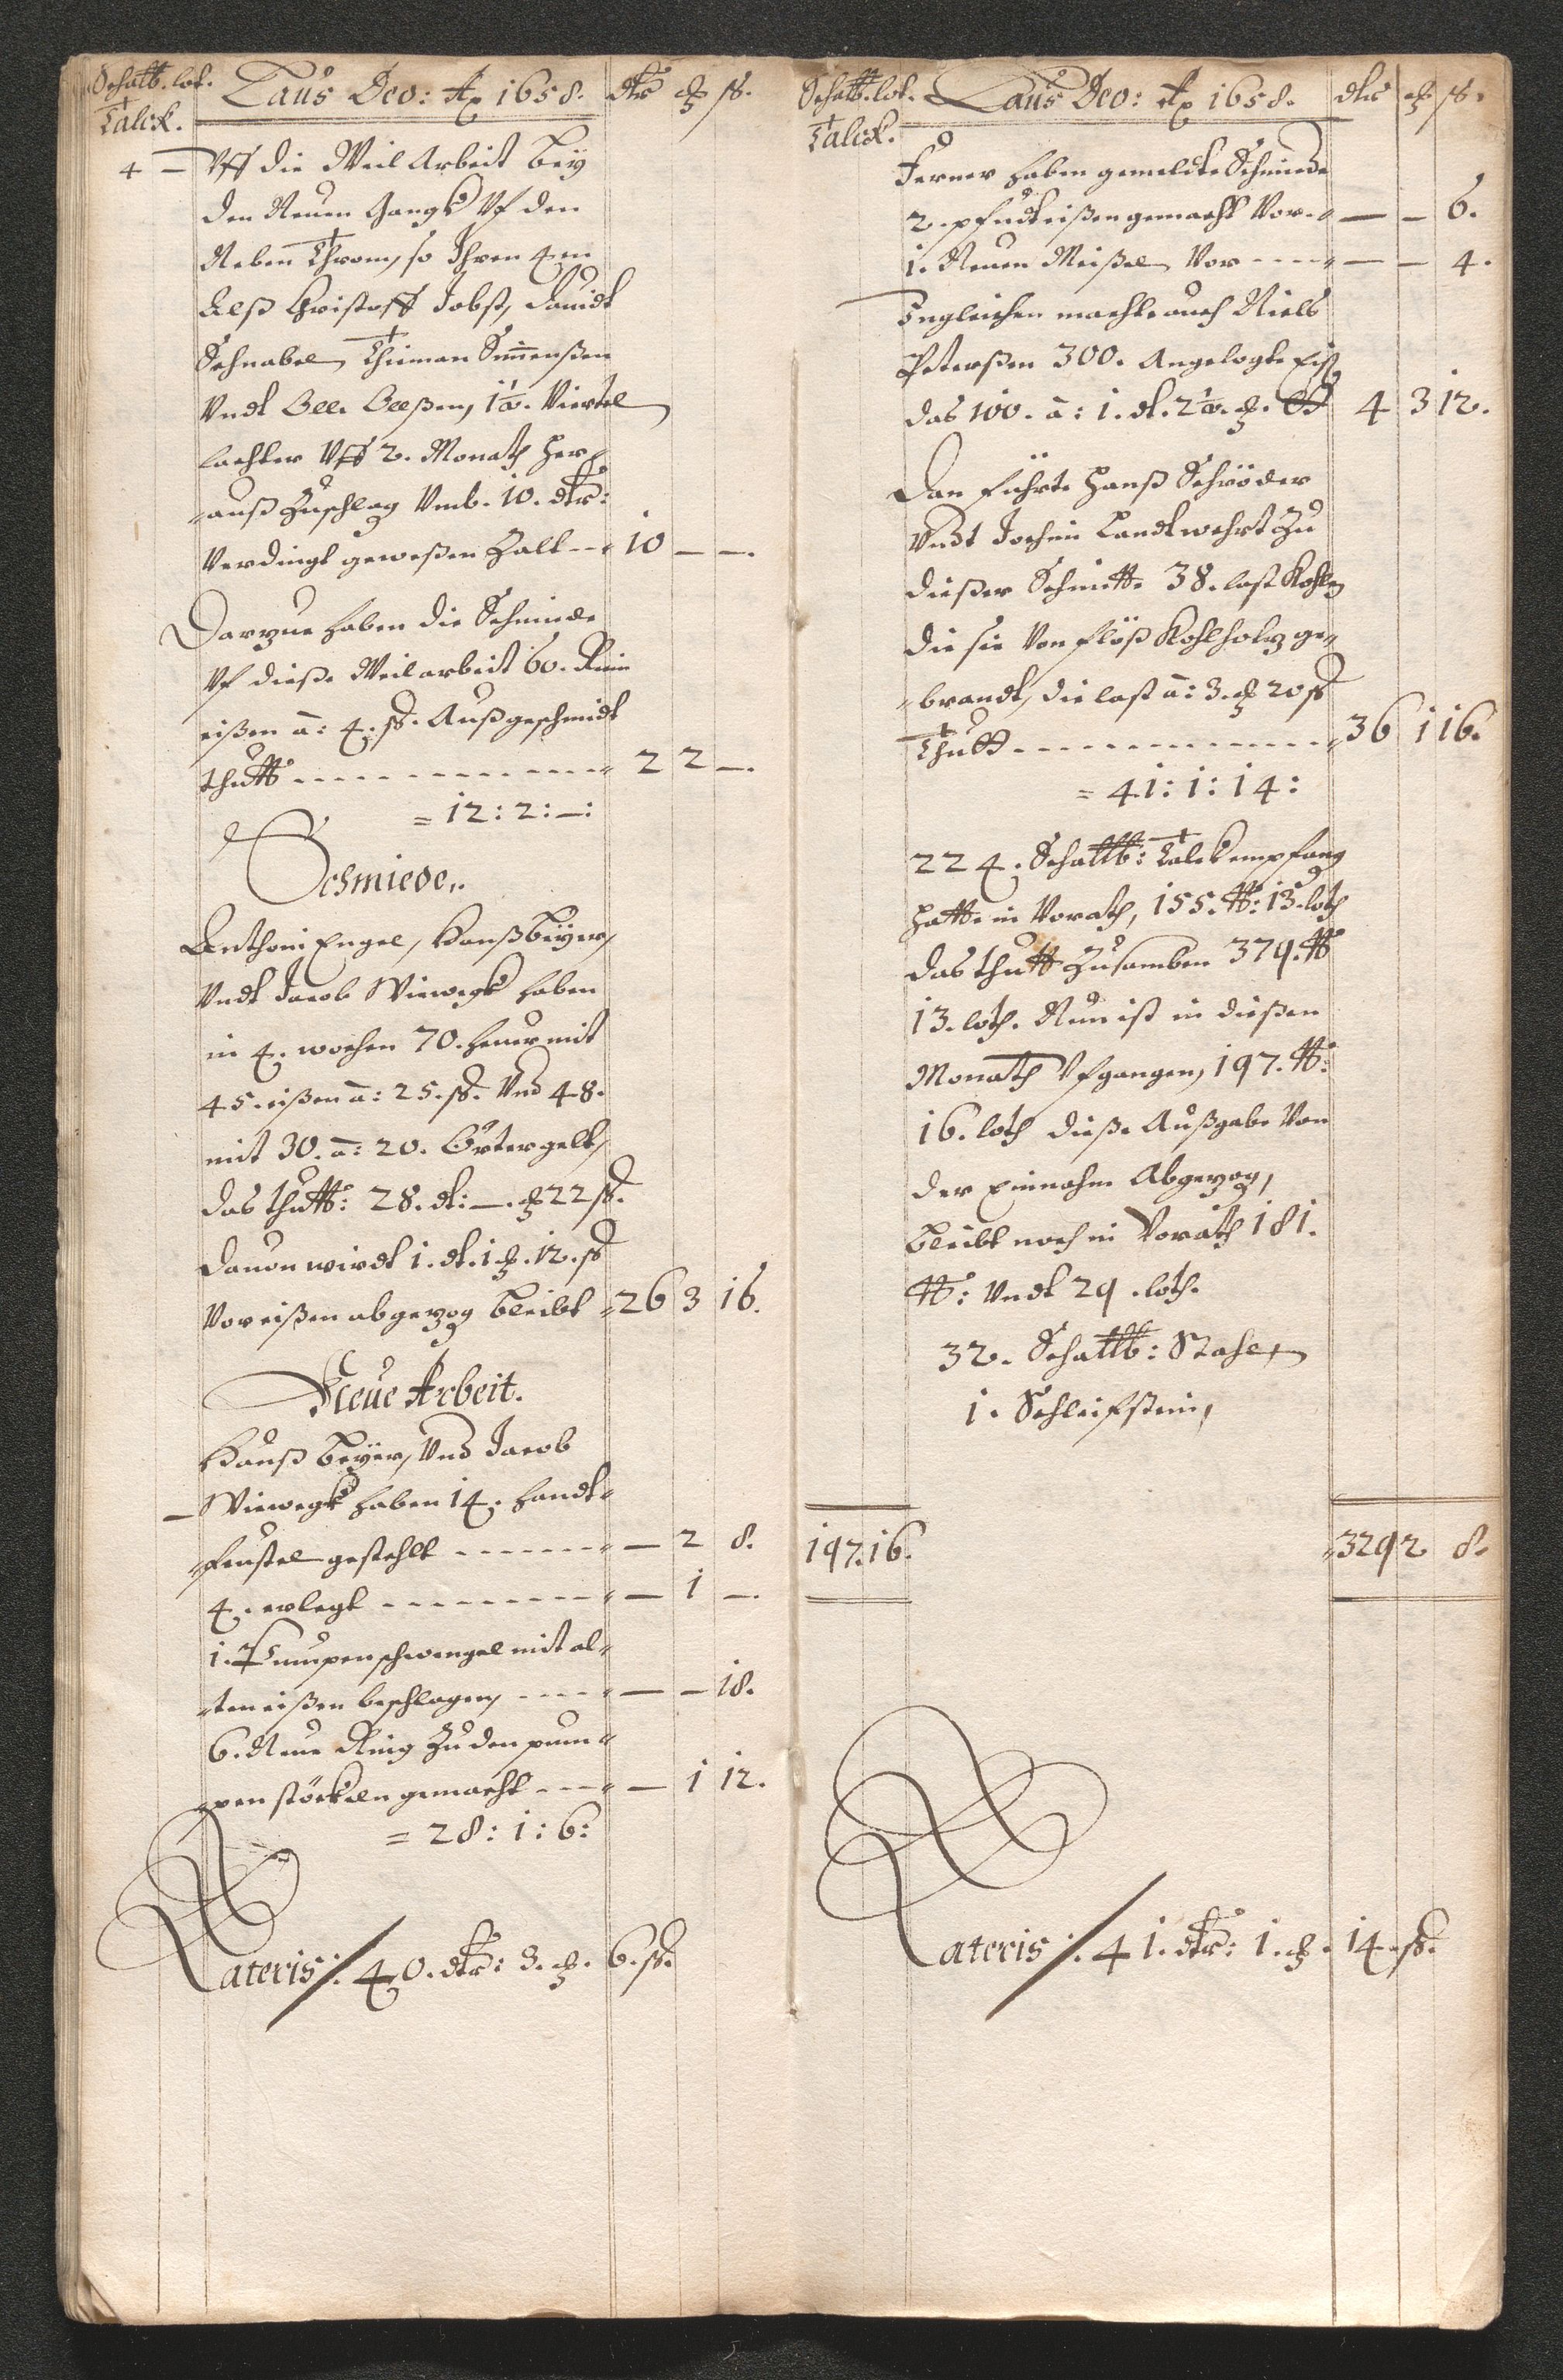 Schal℔. lot.
Talck.
Laus Deo: Aô 1658. dlr ₰ ß.
4 — Vff die Weil Arbeit bey
den Neuen Gangk Vf den
Neben Throm, so Ihren 4 m
Alß Christoff Jobst, Davidt
Schnabel, Thüman Simenßen
Vndt Oele Oelßen, 1½. Viertel
lachter Vff 2. Monath her¬
auß Zuschlag Vmb. 10. dlr:
Verdingt geweßen Zalt -- 10 — —.
Darzue haben die Schmiede
Vf dieße Weilarbeit 60.
eißen â: 4. ß. Außgeschmidt
thutt ------------ 2 2 —.
= 12: 2: —:
Schmiede.
Anthoni Engel, Hanß beyer,
Vndt Jacob Viewegk haben
in 4. wochen 70. heuer mit
45. eißen â: 25. ß. Vnd 48.
mit 30. â: 20. Örtergelt,
das thutt: 28. dl: —. ₰ 22 ß.
dauon wirdt 1. dl. 1 ₰. 12. ß
Vor eißen abgezog bleibt 26 3 16.
Neue Arbeit.
Hanß beyer, Vnd Jacob
— Viewegk haben 14. handt¬
feustel gestehlt ------ — 2 8.
4. erlegt --------- — 1 —.
1. Pumpenschwengel mit al¬
ten eißen beschlagen, ---- — — 18.
6. Neue Ring Zu den pum¬
pen stöckeln gemacht --- — 1 12.
= 28: 1: 6:
Lateris ∕. 40. dlr: 3. ₰. 6. ß.
Schal℔. lot.
Talck.
Laus Deo: Aô 1658. dlr ₰ ß.
Ferner haben gemeldte Schmiede
2. eißen gemacht Vor. — — 6.
1. Neuen Meißel, Vor ---- — — 4.
Ingleichen machte auch Niels
Peterßen 300. Angelegte Eiß
das 100. â: 1. dl. 2½. ₰. 4 3 12.
Dan führte Hanß Schröder
Vndt Jochim Landtwehrt Zu
dießer Schmitte 38. last Kohln
die sie Von flöß Kohlholtz ge¬
brandt, die last â: 3. ₰ 20 ß
Thutt ------------ 36 1 16.
= 41: 1: 14:
224. Schal℔: Talck empfang
hatte in Vorath, 155. ℔: 13. loth
das thutt Zusamben 379. ℔
13. loth. Nun ist in dießen
Monath Vfgangen, 197. ℔:
16. loth dieße Außgabe Von
der Einnahm Abgezog,
bleibt noch in Vorath 181.
℔: Vndt 29. loth.
32. Schal℔: Stahl,
1. Schleifstein,
197. 16. 329 2 8.
Lateris ∕. 41. dlr: 1. ₰. 14. ß.